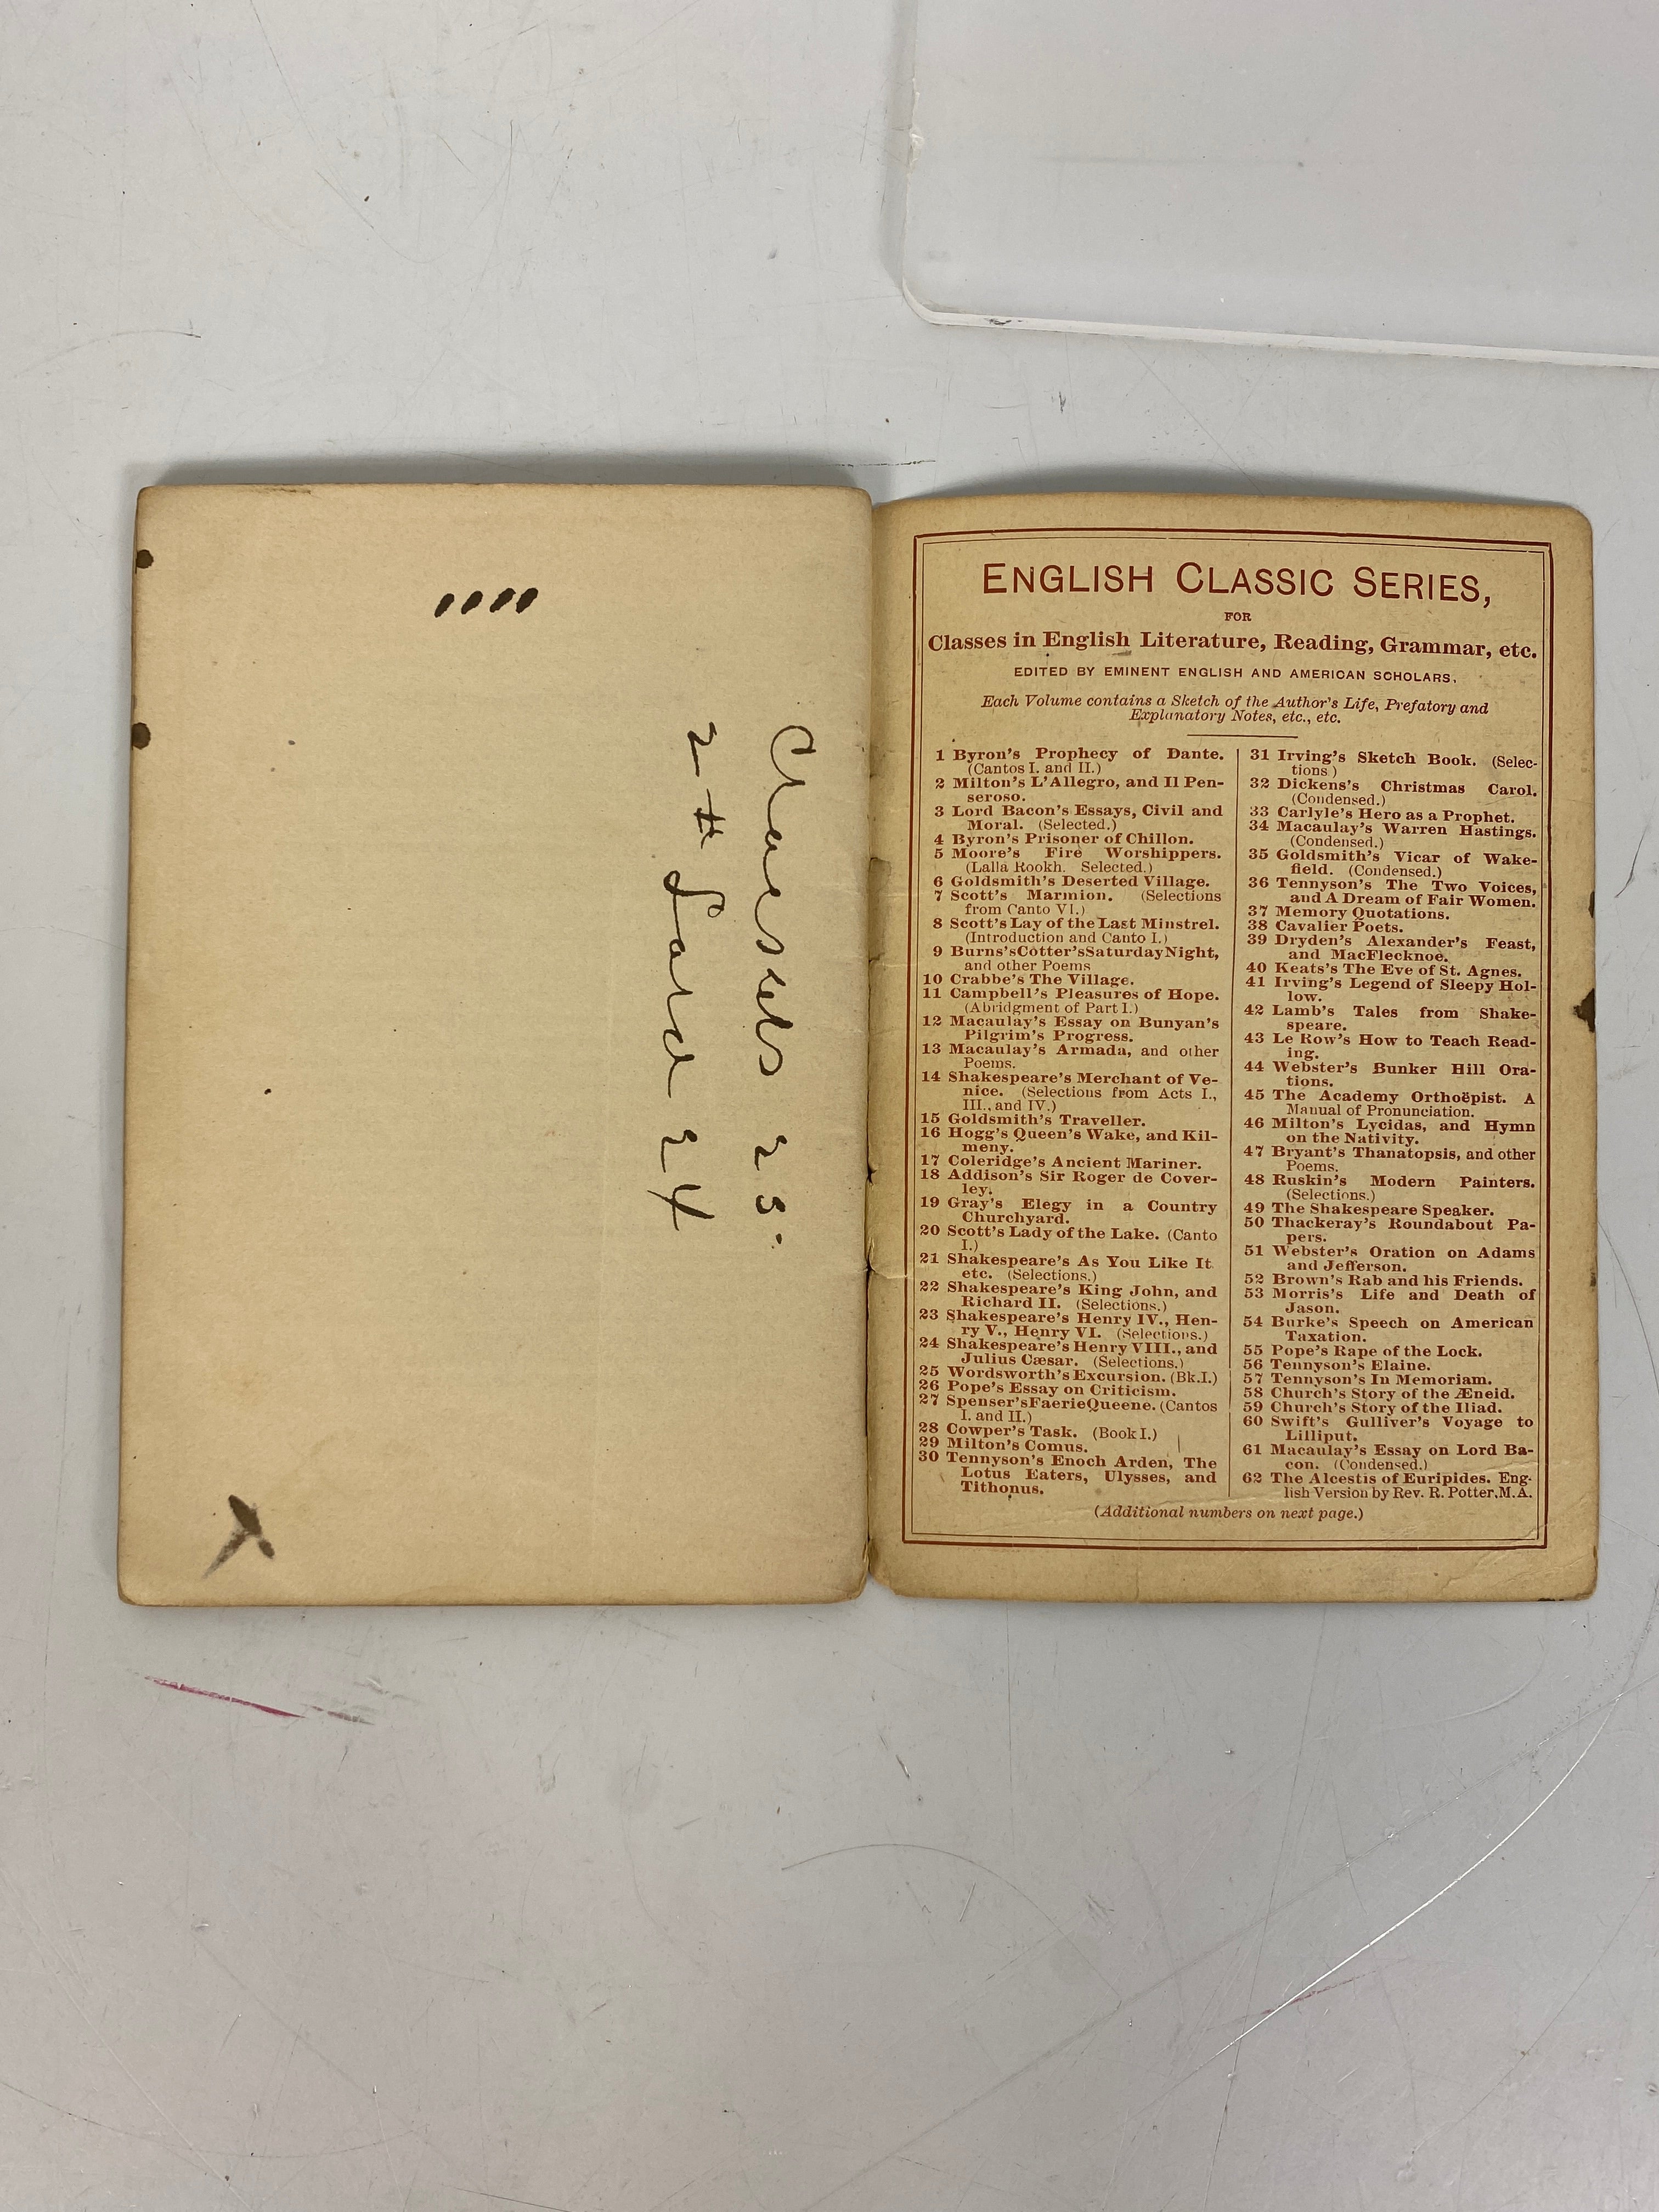 Crackers 25.
2 # Lard 24
ENGLISH CLASSIC SERIES,
FOR
Classes in English Literature, Reading, Grammar, etc.
EDITED BY EMINENT ENGLISH AND AMERICAN SCHOLARS.
Each Volume contains a Sketch of the Author's Life, Prefatory and
Explanatory Notes, etc., etc.
1 Byron's Prophecy of Dante.
(Cantos I. and II.)
2 Milton's L'Allegro, and Il Pen-
seroso.
3 Lord Bacon's Essays, Civil and
Moral. (Selected.)
4 Byron's Prisoner of Chillon.
5 Moore's Fire Worshippers.
(Lalla Rookh. Selected.)
6 Goldsmith's Deserted Village.
7 Scott's Marmion. (Selections
from Canto VI.)
8 Scott's Lay of the Last Minstrel.
(Introduction and Canto I.)
9 Burns's Cotter's Saturday Night,
and other Poems
10 Crabbe's The Village.
11 Campbell's Pleasures of Hope.
(Abridgment of Part I.)
12 Macaulay's Essay on Bunyan's
Pilgrim's Progress.
13 Macaulay's Armada, and other
Poems.
14 Shakespeare's Merchant of Ve-
nice. (Selections from Acts I.,
III., and IV.)
15 Goldsmith's Traveller.
16 Hogg's Queen's Wake, and Kil-
meny.
17 Coleridge's Ancient Mariner.
18 Addison's Sir Roger de Cover-
ley.
19 Gray's Elegy in a Country
Churchyard.
20 Scott's Lady of the Lake. (Canto
I.)
21 Shakespeare's As You Like It
etc. (Selections.)
22 Shakespeare's King John, and
Richard II. (Selections.)
23 Shakespeare's Henry IV., Hen-
ry V., Henry VI. (Selections.)
24 Shakespeare's Henry VIII., and
Julius Cæsar. (Selections.)
25 Wordsworth's Excursion. (Bk.I.)
26 Pope's Essay on Criticism.
27 Spenser's Faerie Queene. (Cantos
I. and II.)
28 Cowper's Task. (Book I.)
29 Milton's Comus.
30 Tennyson's Enoch Arden, The
Lotus Eaters, Ulysses, and
Tithonus.
31 Irving's Sketch Book. (Selec-
tions )
32 Dickens's Christmas Carol.
(Condensed.)
33 Carlyle's Hero as a Prophet.
34 Macaulay's Warren Hastings.
(Condensed.)
35 Goldsmith's Vicar of Wake-
field. (Condensed.)
36 Tennyson's The Two Voices,
and A Dream of Fair Women.
37 Memory Quotations.
38 Cavalier Poets.
39 Dryden's Alexander's Feast,
and MacFlecknoe.
40 Keats's The Eve of St. Agnes.
41 Irving's Legend of Sleepy Hol-
low.
42 Lamb's Tales from Shake-
speare.
43 Le Row's How to Teach Read-
ing.
44 Webster's Bunker Hill Ora-
tions.
45 The Academy Orthoëpist. A
Manual of Pronunciation.
46 Milton's Lycidas, and Hymn
on the Nativity.
47 Bryant's Thanatopsis, and other
Poems.
48 Ruskin's Modern Painters.
(Selections.)
49 The Shakespeare Speaker.
50 Thackeray's Roundabout Pa-
pers.
51 Webster's Oration on Adams
and Jefferson.
52 Brown's Rab and his Friends.
53 Morris's Life and Death of
Jason.
54 Burke's Speech on American
Taxation.
55 Pope's Rape of the Lock.
56 Tennyson's Elaine.
57 Tennyson's In Memoriam.
58 Church's Story of the Æneid.
59 Church's Story of the Iliad.
60 Swift's Gulliver's Voyage to
Lilliput.
61 Macaulay's Essay on Lord Ba-
con. (Condensed.)
62 The Alcestis of Euripides. Eng-
lish Version by Rev. R. Potter, M.A.
(Additional numbers on next page.)